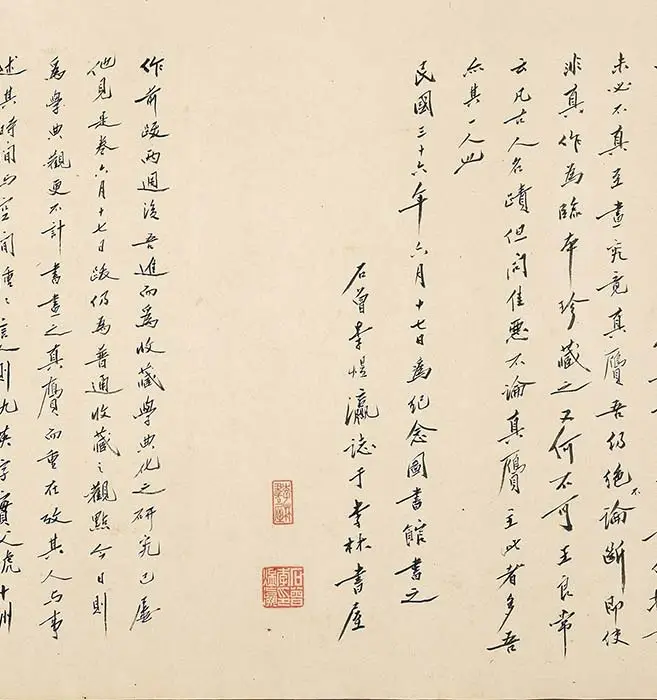 未必不真至畫究竟真贗吾仍絕不論斷即使
非真作為臨本珍藏之又何不可王良常
云凡古人名蹟但問佳惡不論真贗主此者多吾
亦其一人也
民國三十六年六月十七日為紀念圖書館書之
石曾李煜瀛誌于李林書屋
作前跋兩週後吾進而為收藏學典化之研究已屬
他見是卷六月十七日跋仍為普通收藏之觀點今日則
為學典觀更不計書畫之真贗而重在考其人與事
述其時間與空間重重言之則九英字實父虎十州